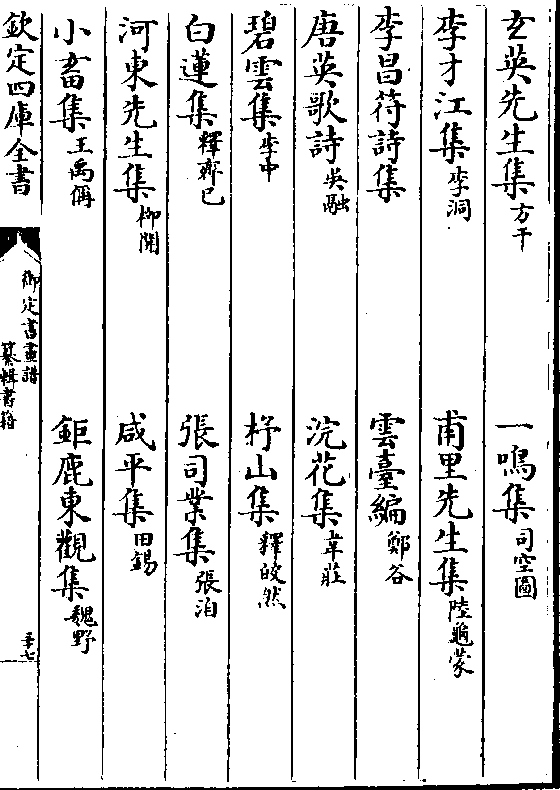 玄英先生集方干 一鳴集司空圖
李才江集李洞 甫里先生集陸龜蒙
李昌符詩集 雲臺編鄭谷
唐英歌詩吳融 浣花集韋莊
碧雲集李中 杼山集釋皎然
白蓮集釋齊己 張司業集張洎
河東先生集柳開 咸平集田錫
小畜集王禹偁 鉅鹿東觀集魏野
欽定四庫全書
御定書畫譜
纂輯書籍